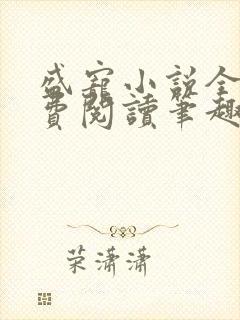 盛寵小說全
費閱讀筆趣
荣潇潇